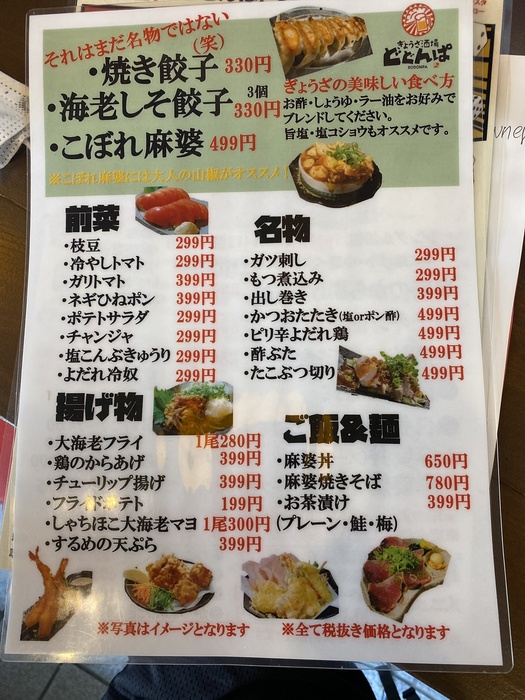 それはまだ名物ではない(笑)
・焼き餃子 330円
・海老しそ餃子 3個 330円
・こぼれ麻婆 499円
※こぼれ麻婆には大人の山椒がオススメ!
ぎょうざ酒場
どとんぱ
DODONPA
ぎょうざの美味しい食べ方
お酢・しょうゆ・ラー油をお好みで
ブレンドしてください。
旨塩・塩コショウもオススメです。
前菜
・枝豆 299円
・冷やしトマト 299円
・ガリトマト 399円
・ネギひねポン 399円
・ポテトサラダ 299円
・チャンジャ 299円
・塩こんぶきゅうり 299円
・よだれ冷奴 299円
名物
・ガツ刺し 299円
・もつ煮込み 299円
・出し巻き 399円
・かつおたたき(塩orポン酢) 499円
・ピリ辛よだれ鶏 499円
・酢ぶた 499円
・たこぶつ切り 499円
揚げ物
・大海老フライ 1尾280円
・鶏のからあげ 399円
・チューリップ揚げ 399円
・フライドポテト 199円
・しゃちほこ大海老マヨ 1尾300円
・するめの天ぷら 399円
ご飯&麺
・麻婆丼 650円
・麻婆焼きそば 780円
・お茶漬け 399円
(プレーン・鮭・梅)
※写真はイメージとなります
※全て税抜き価格となります